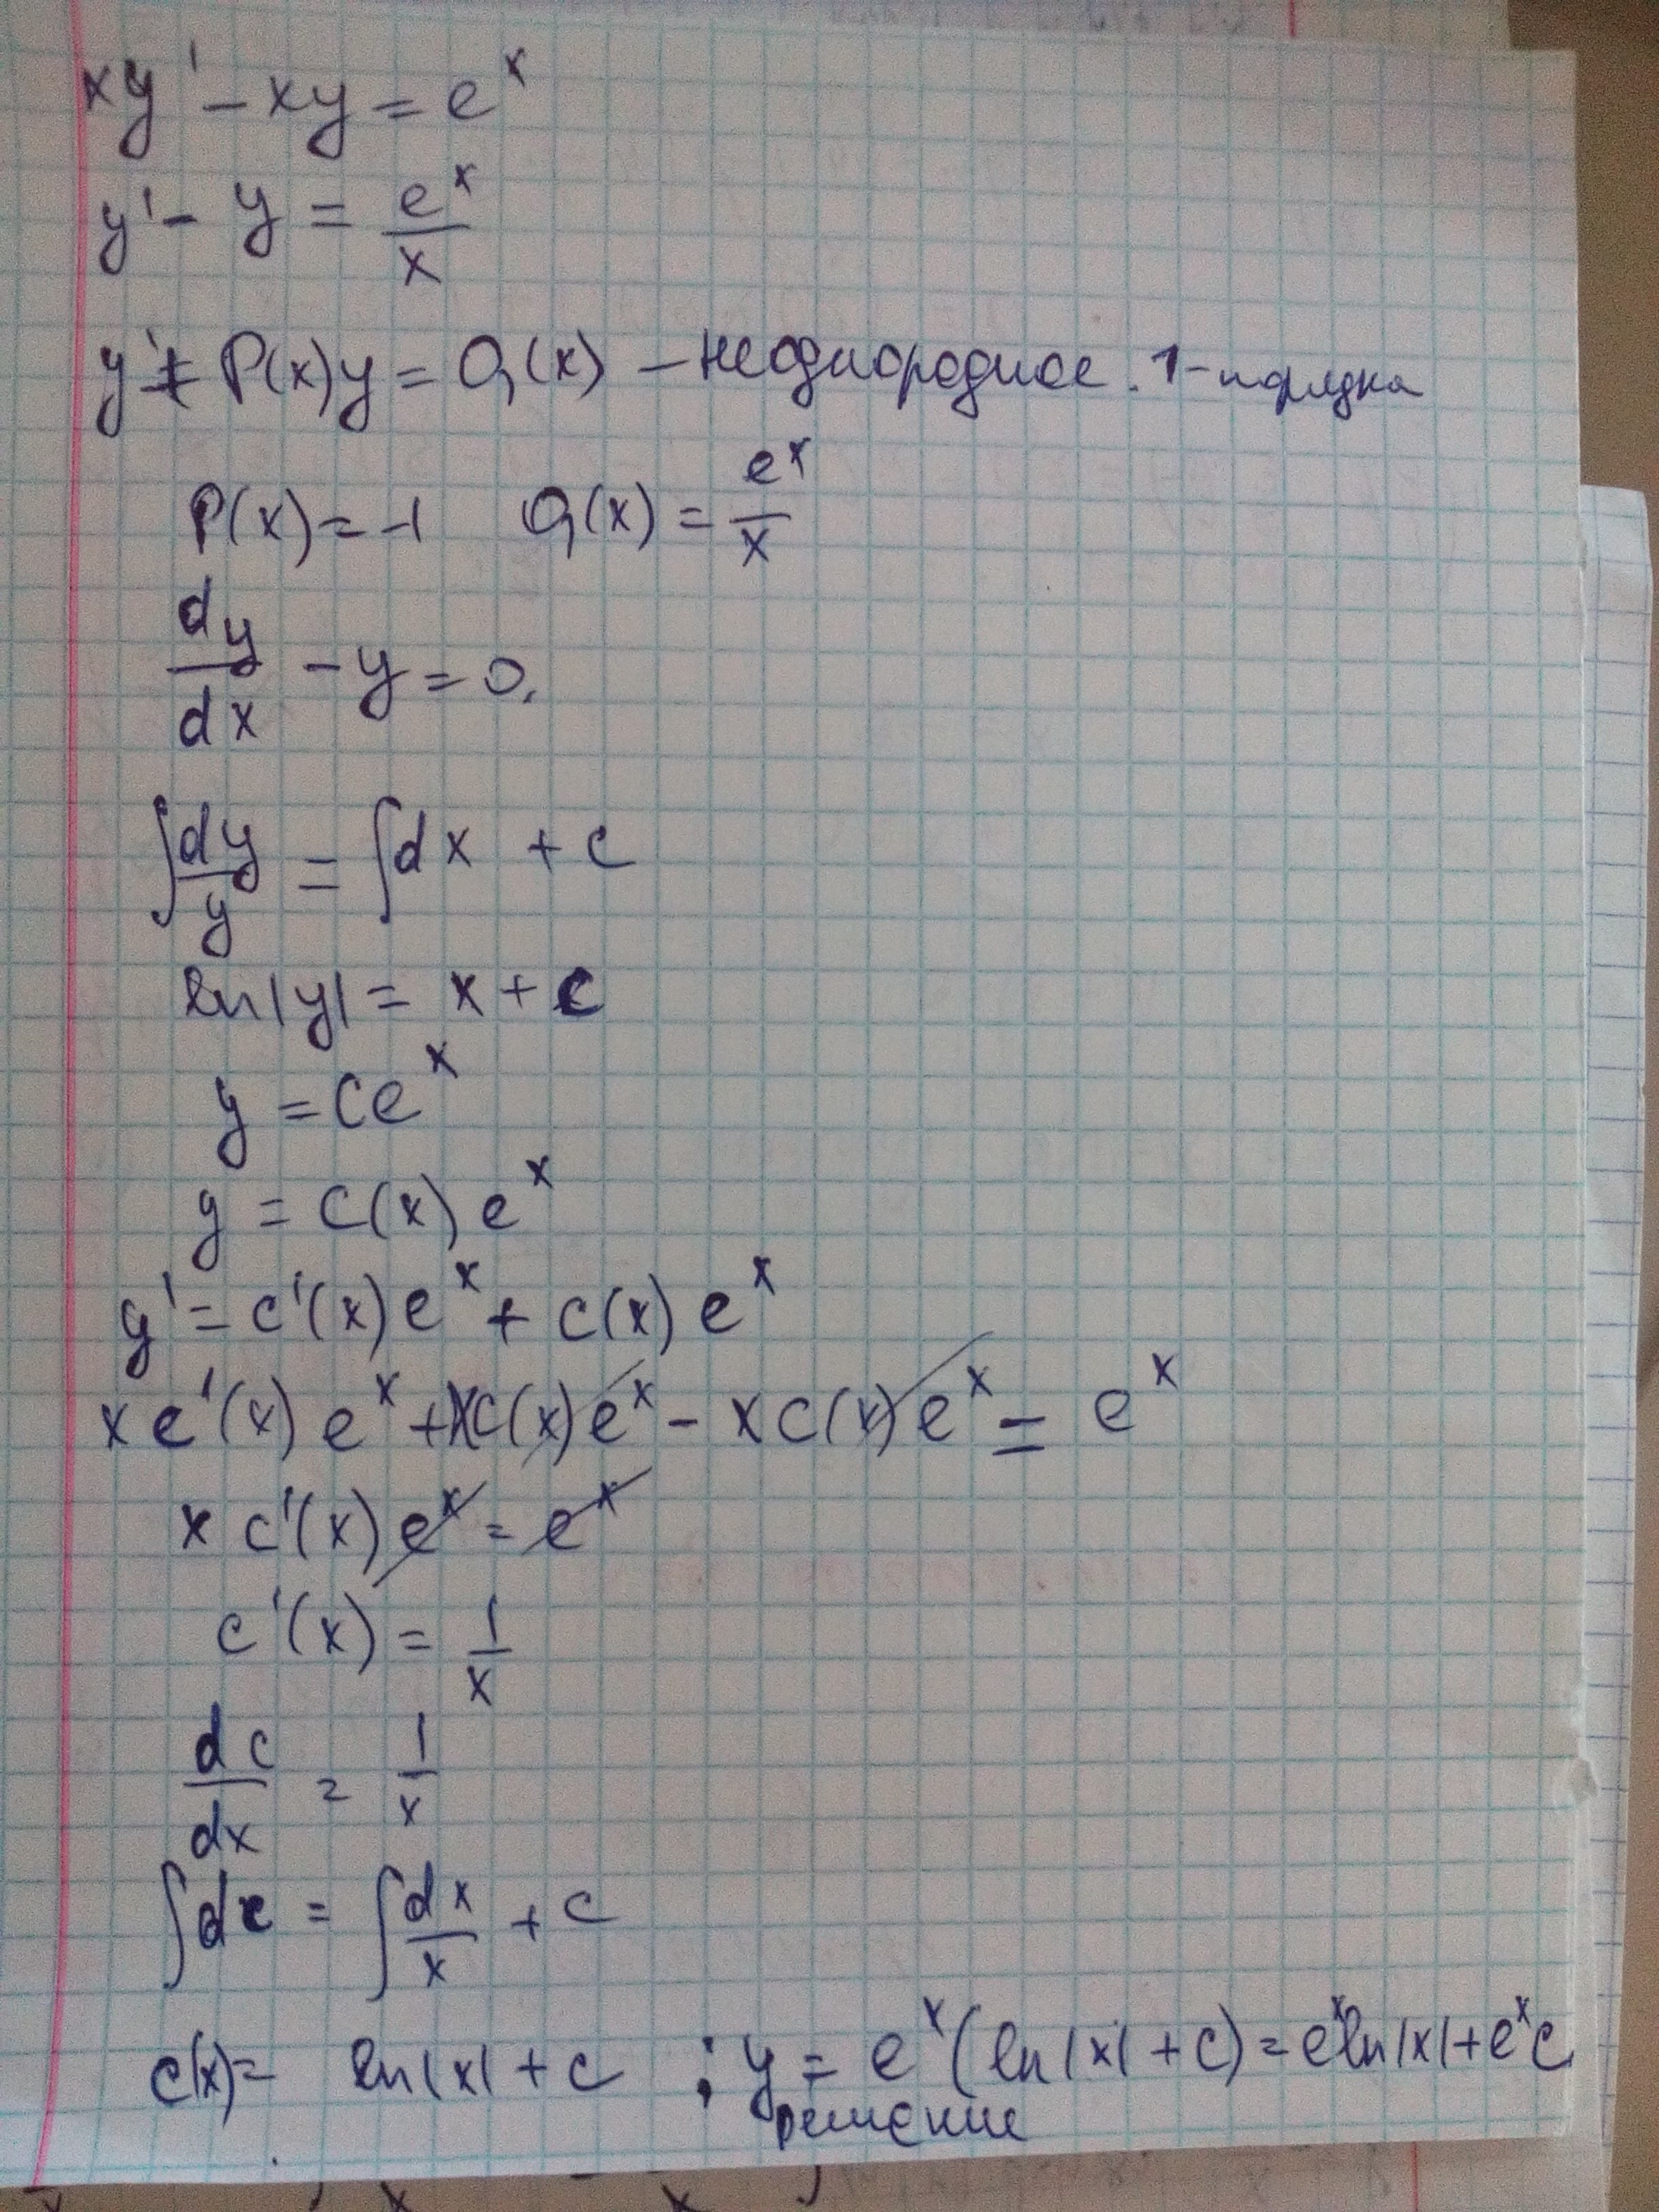 xy' - xy = e^x
y' - y = e^x/x
y' + P(x)y = Q(x) - неоднородное. 1-порядка
P(x) = -1 Q(x) = e^x/x
dy/dx - y = 0.
∫dy/y = ∫dx + c
ln|y| = x + c
y = Ce^x
y = C(x) e^x
y' = c'(x) e^x + c(x) e^x
x c'(x) e^x + xc(x) e^x - xc(x) e^x = e^x
x c'(x) e^x = e^x
c'(x) = 1/x
dc/dx = 1/x
∫dc = ∫dx/x + c
c(x) = ln|x| + c ; y = e^x (ln|x| + c) = e^x ln|x| + e^x c
решение